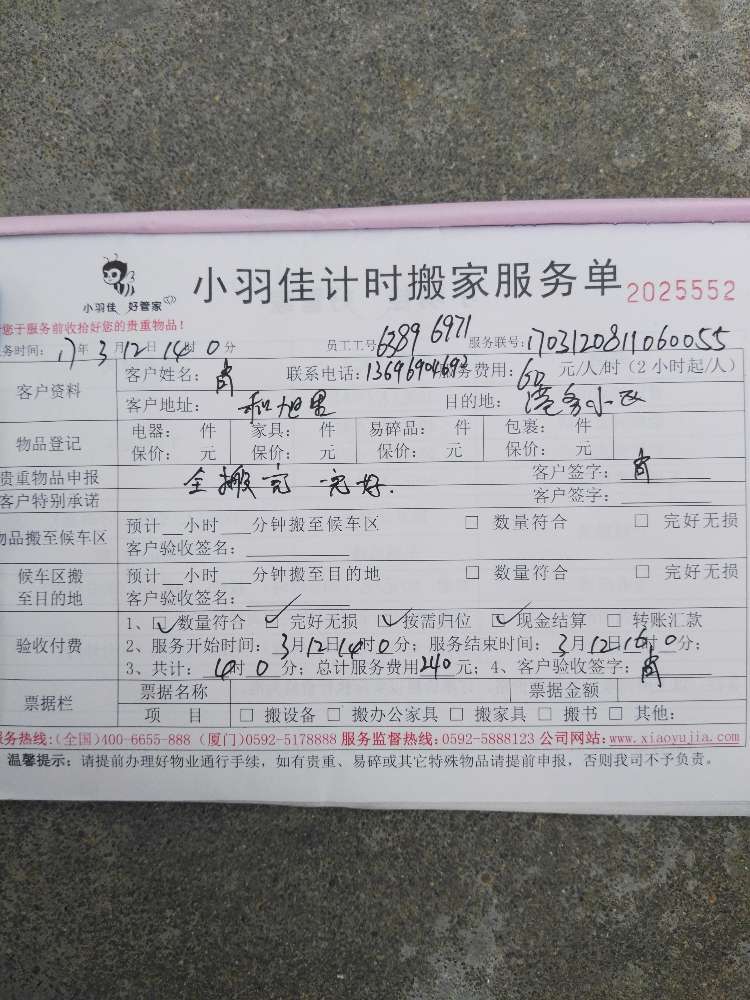 小羽佳 好管家
小羽佳计时搬家服务单 2025552
您于服务前收拾好您的贵重物品!
务时间: 17年3月12日14时0分 员工工号 6389 6971 服务联号: 1703120811060055
客户资料
客户姓名: 肖 联系电话: 服务费用: 60 元/人/时(2小时起/人)
客户地址: 和旭里 目的地: 港务小区
物品登记
电器: 件 家具: 件 易碎品: 件 包裹: 件
保价: 元 保价: 元 保价: 元 保价: 元
贵重物品申报 全搬完 完好. 客户签字: 肖
客户特别承诺 客户签字:
物品搬至候车区
预计 小时 分钟搬至候车区 □ 数量符合 □ 完好无损
客户验收签名:
候车区搬至目的地
预计 小时 分钟搬至目的地 □ 数量符合 □ 完好无损
客户验收签名:
验收付费
1、☑数量符合 ☑ 完好无损 ☑按需归位 ☑现金结算 □ 转账汇款
2、服务开始时间: 3月12日14时0分; 服务结束时间: 3月12日16时0分;
3、共计: 4时0分; 总计服务费用240元; 4、客户验收签字: 肖
票据栏
票据名称 票据金额
项 目 □ 搬设备 □ 搬办公家具 □ 搬家具 □ 搬书 □ 其他:
务热线:(全国)400-6655-888 (厦门)0592-5178888 服务监督热线:0592-5888123 公司网站:www.xiaoyujia.com
温馨提示: 请提前办理好物业通行手续, 如有贵重、易碎或其它特殊物品请提前申报, 否则我司不予负责。